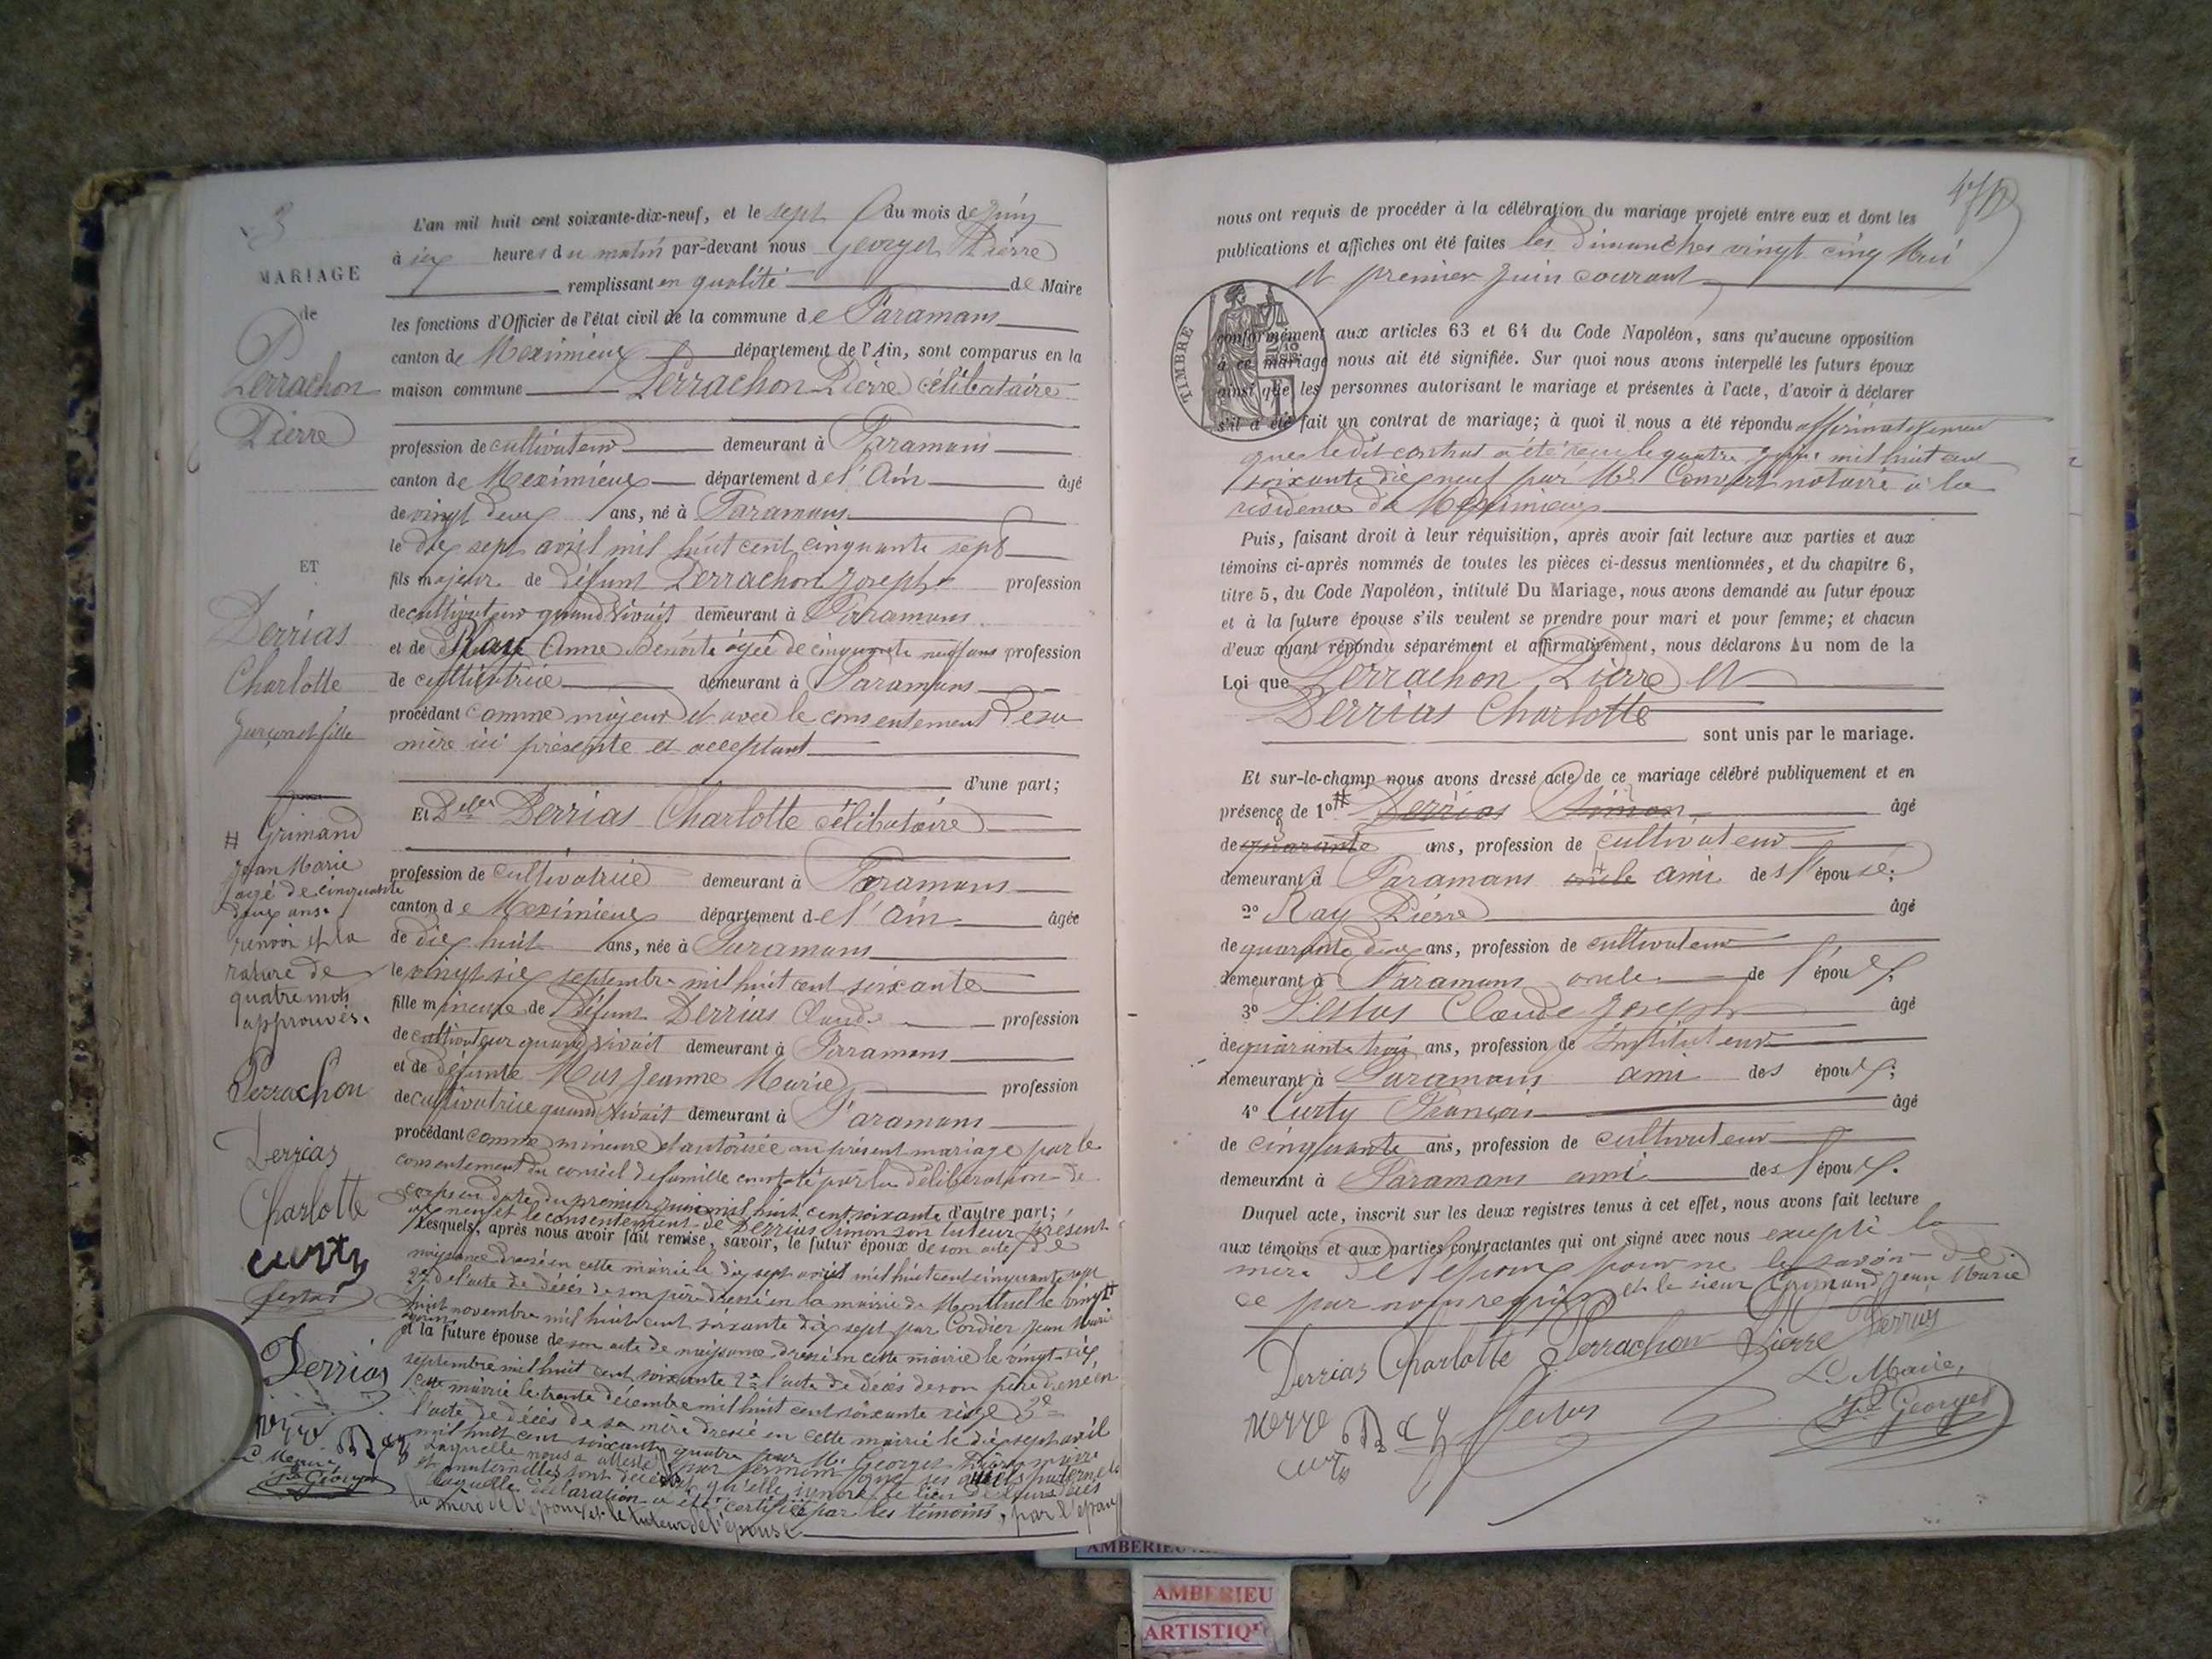 3
MARIAGE
de
Perrachon
Pierre
ET
Derrias
Charlotte
garçon et fille
# Grimand
Jean Marie
âgé de cinquante
deux ans.
renvoi et la
rature de
quatre mots
approuvés.
Perrachon
Derrias
Charlotte
curty
Festas
Derrias
Pierre Ray
Le Maire
Georges
L'an mil huit cent soixante-dix-neuf, et le sept du mois de Juin
à six heures du matin par-devant nous Georges Pierre
remplissant en qualité de Maire
les fonctions d'Officier de l'état civil de la commune de Faramans
canton de Meximieux département de l'Ain, sont comparus en la
maison commune Perrachon Pierre célibataire
profession de cultivateur demeurant à Faramans
canton de Meximieux département de l'Ain âgé
de vingt deux ans, né à Faramans
le dix sept avril mil huit cent cinquante sept
fils majeur de défunt Perrachon Joseph profession
de cultivateur quand vivait demeurant à Faramans
et de Ray Anne Benoite âgée de cinquante neuf ans profession
de cultivatrice demeurant à Faramans
procédant comme majeur et avec le consentement de sa
mère ici présente et acceptant
d'une part;
Et Delle Derrias Charlotte célibataire
profession de cultivatrice demeurant à Faramans
canton de Meximieux département de l'Ain âgée
de dix huit ans, née à Faramans
le vingt six septembre mil huit cent soixante
fille mineure de défunt Derrias Claude profession
de cultivateur quand vivait demeurant à Faramans
et de défunte Mas Jeanne Marie profession
de cultivatrice quand vivait demeurant à Faramans
procédant comme mineure et autorisée au présent mariage par le
consentement du conseil de famille constaté par la délibération de
ce corps en date du premier juin mil huit cent soixante d'autre part;
dix neuf et le consentement de Derrias Simon son tuteur présent
Lesquels, après nous avoir fait remise, savoir, le futur époux de son acte de
naissance dressé en cette mairie le dix sept avril mil huit cent cinquante sept
2° de l'acte de décès de son père dressé en la mairie de Montluel le vingt
huit novembre mil huit cent soixante dix sept par Cordier Jean Marie
et la future épouse de son acte de naissance dressé en cette mairie le vingt-six
septembre mil huit cent soixante 2° l'acte de décès de son père dressé en
cette mairie le trente décembre mil huit cent soixante seize 3°
l'acte de décès de sa mère dressé en cette mairie le dix sept avril
mil huit cent soixante quatre par Mr Georges Pierre maire
laquelle nous a attesté par serment que ses aïeuls paternels
et maternelles sont décédés qu'elle ignore le lieu de leurs décès
laquelle déclaration a été certifiée par les témoins, par l'époux
la mère de l'époux et le tuteur de l'épouse
nous ont requis de procéder à la célébration du mariage projeté entre eux et dont les
publications et affiches ont été faites les Dimanches vingt cinq Mai
et premier juin courant
TIMBRE
conformément aux articles 63 et 64 du Code Napoléon, sans qu'aucune opposition
à ce mariage nous ait été signifiée. Sur quoi nous avons interpellé les futurs époux
ainsi que les personnes autorisant le mariage et présentes à l'acte, d'avoir à déclarer
s'il a été fait un contrat de mariage; à quoi il nous a été répondu affirmativement
que le dit contrat a été reçu le quatre juin mil huit cent
soixante dix neuf par Me Convert notaire à la
résidence de Meximieux
Puis, faisant droit à leur réquisition, après avoir fait lecture aux parties et aux
témoins ci-après nommés de toutes les pièces ci-dessus mentionnées, et du chapitre 6,
titre 5, du Code Napoléon, intitulé Du Mariage, nous avons demandé au futur époux
et à la future épouse s'ils veulent se prendre pour mari et pour femme; et chacun
d'eux ayant répondu séparément et affirmativement, nous déclarons Au nom de la
Loi que Perrachon Pierre et
Derrias Charlotte
sont unis par le mariage.
Et sur-le-champ nous avons dressé acte de ce mariage célébré publiquement et en
présence de 1° # Derrias Simon âgé
de quarante ans, profession de cultivateur
demeurant à Faramans oncle ami des l'épousé;
2° Ray Pierre âgé
de quarante deux ans, profession de cultivateur
demeurant à Faramans oncle de l'époux;
3° Festas Claude Joseph âgé
de quarante trois ans, profession de Instituteur
demeurant à Faramans ami des époux;
4° Curty François âgé
de cinquante ans, profession de cultivateur
demeurant à Faramans ami des l'époux.
Duquel acte, inscrit sur les deux registres tenus à cet effet, nous avons fait lecture
aux témoins et aux parties contractantes qui ont signé avec nous excepté la
mère de l'époux pour ne le savoir de
ce par nous requis et le sieur Grimand Jean Marie
Derrias Charlotte Perrachon Pierre Derrias
Le Maire,
Georges
Pierre Ray Festas
curty
AMBERIEU
AMBERIEU
ARTISTIQUE